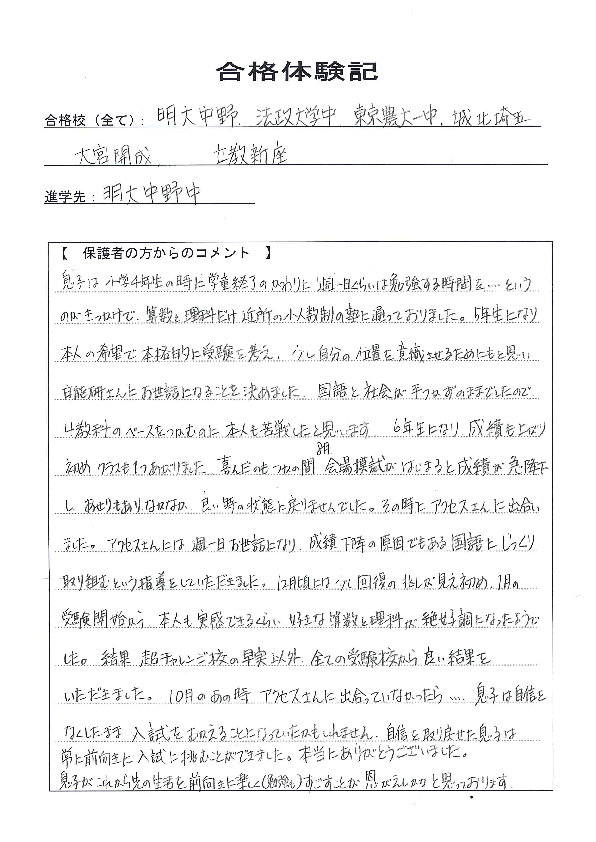 合格体験記
合格校（全て）: 明大中野、法政大学中 東京農大一中、城北埼玉
大宮開成 立教新座
進学先：明大中野中
【 保護者の方からのコメント 】
息子は小学4年生の時に学童終了のかわりに週一日くらいは勉強する時間を…という
のがきっかけで、算数と理科だけ近所の小人数制の塾に通っておりました。5年生になり
本人の希望で本格的に受験を考え、少し自分の位置を意識させるためにもと思い
日能研さんにお世話になることを決めました。国語と社会が手つかずのままでしたので
4教科のペースをつかむのに本人も苦戦したと思います 6年生になり 成績も上がり
初め クラスも1つあがりました 喜んだのもつかの間 8月 会場模試がはじまると成績が急降下
し あせりもありなかなか 良い時の状態に戻りませんでした。その時に アクセスさんに出会い
ました。アクセスさんには 週一日お世話になり、成績下降の原因でもある国語にじっくり
取り組むという指導をしていただきました。12月頃には少し回復の兆しが見え初め、1月の
受験開始から 本人も実感できるくらい 好きな算数と理科が絶好調になったようで
した。結果 超チャレンジ校の早実以外、全ての受験校から良い結果を
いただきました。10月のあの時 アクセスさんに出会っていなかったら…… 息子は自信を
なくしたまま 入試をむかえることになっていたかもしれません、自信を取り戻せた息子は
常に前向きに入試に挑むことができました。本当にありがとうございました。
息子がこれから先の生活を前向きに楽しく(勉強も)すごすことが 恩がえしかなと思っております.